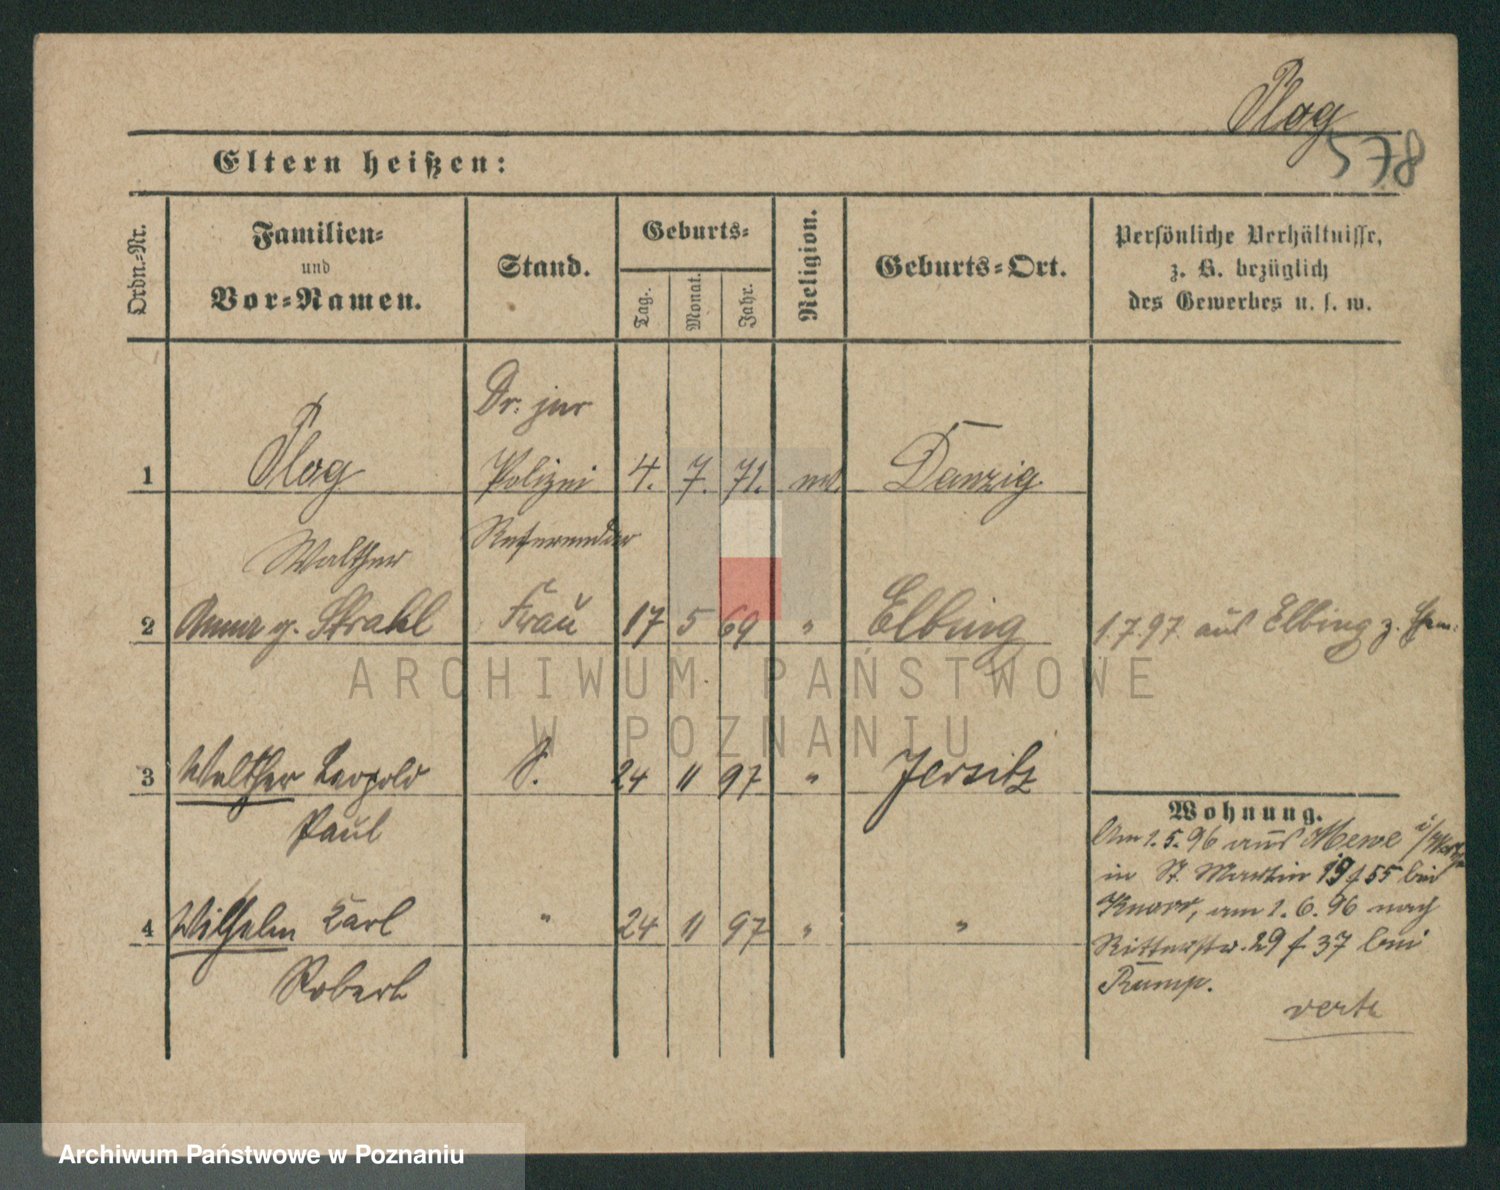 Plog
578
Eltern heißen:
Ordn.-Nr.
Familien-
und
Vor-Namen.
Stand.
Geburts-
Tag.
Monat.
Jahr.
Religion.
Geburts-Ort.
Persönliche Verhältnisse,
z. B. bezüglich
des Gewerbes u. s. w.
Dr. jur
1 Plog Polizei 4. 7. 71. Danzig.
Walther Referendar
2 Anna g. Strahl Frau 17 5 69 " Elbing 1 7 97 aus Elbing z.
3 Walther Leopold S. 24 11 97 " Jersitz
Paul
4 Wilhelm Karl " 24 11 97 " "
Robert
Wohnung.
Am 1.5.96 aus Mewe
in St. Martin 19 f 55 bei
Knorr, am 1.6.96 nach
Ritterstr. 29 f 37 bei
Rump.
verte
ARCHIWUM PAŃSTWOWE
W POZNANIU
Archiwum Państwowe w Poznaniu